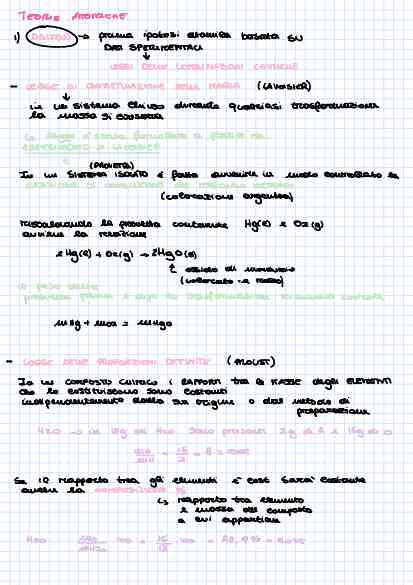 TEORIE ATOMICHE
1) DALTON → prima ipotesi atomica basata su
DATI SPERIMENTALI
LEGGI DELLE COMBINAZIONI CHIMICHE
- LEGGE DI CONSERVAZIONE DELLA MASSA (LAVOISIER)
in un sistema chiuso durante qualsiasi trasformazione
la massa si conserva
la legge è stata formulata a partire da
ESPERIMENTO DI LAVOISIER
(PROVETTA)
In un SISTEMA ISOLATO è fatta avvenire in modo controllato la
REAZIONE DI COMBUSTIONE DEL MERCURIO METALLICO
(colorazione argentea)
riscaldando la provetta contenente Hg(l) e O2(g)
avviene la reazione
2Hg(l) + O2(g) → 2HgO(s)
ossido di mercurio
(colorato rosso)
il peso della
provetta prima e dopo la trasformazione rimaneva costante
mHg + mO2 = mHgO
- LEGGE DELLE PROPORZIONI DEFINITE (PROUST)
In un COMPOSTO CHIMICO i RAPPORTI tra le MASSE degli ELEMENTI
che lo costituiscono sono costanti
indipendentemente dalla sua origine o dal metodo di
preparazione
H2O → in 18g di H2O sono presenti 2g di H e 16g di O
= 16/2 = 8 =
Se il rapporto tra gli elementi è cost sarà costante
anche la COMPOSIZIONE %
↳ rapporto tra elemento
e massa del composto
a cui appartiene
H2O mO/mH2O 100 = 16/18 100 =